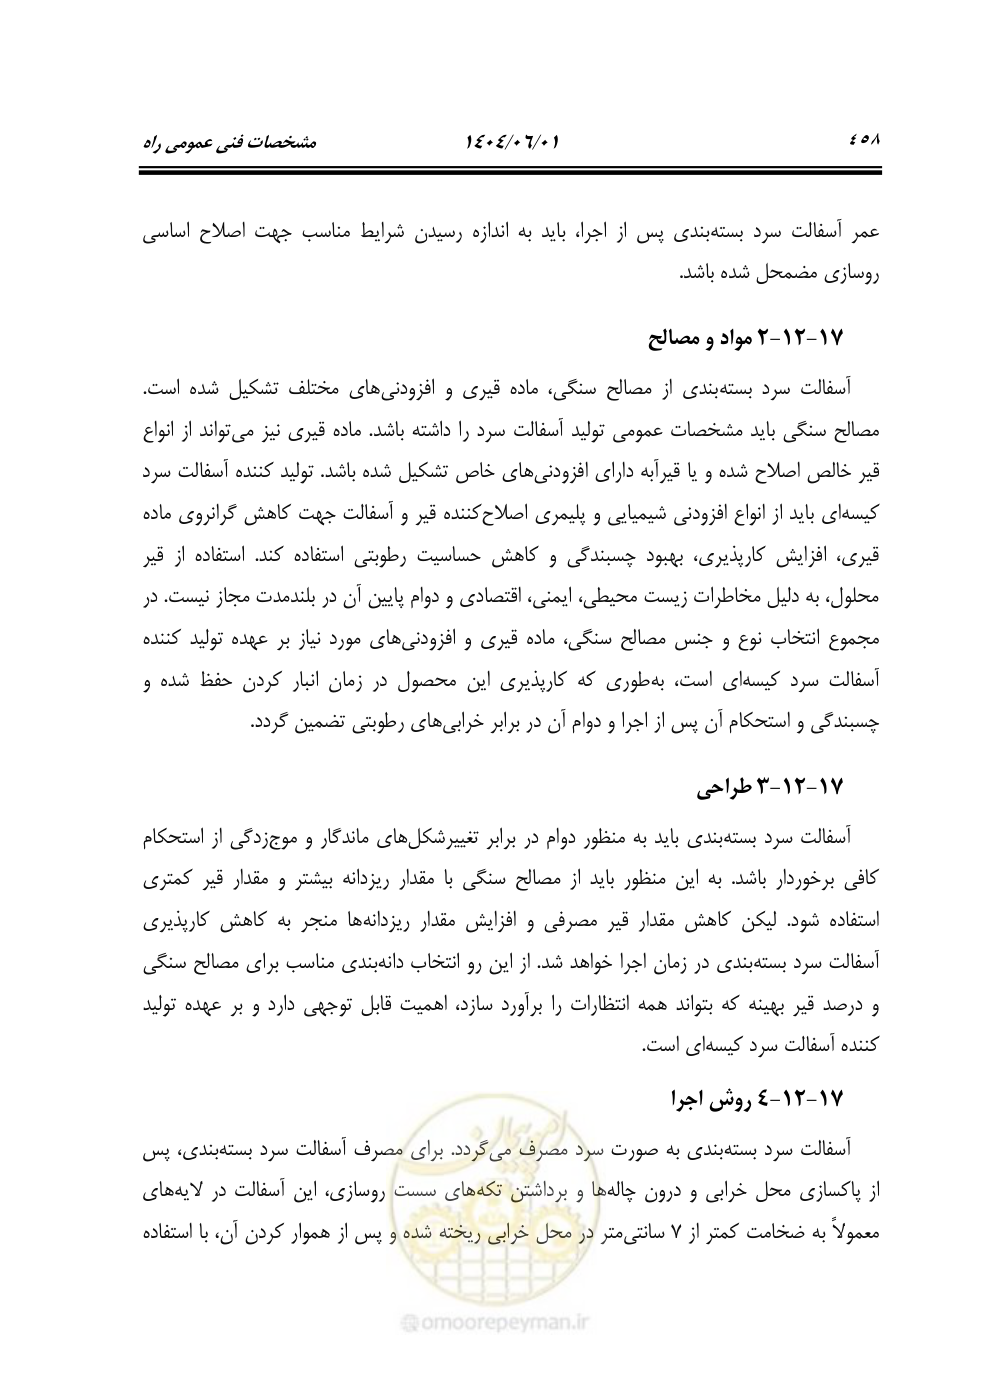 ۴۵۸
۱۴۰۴/۰۶/۰۱
مشخصات فنی عمومی راه
عمر آسفالت سرد بسته‌بندی پس از اجرا، باید به اندازه رسیدن شرایط مناسب جهت اصلاح اساسی
روسازی مضمحل شده باشد.
۱۷-۱۲-۲ مواد و مصالح
آسفالت سرد بسته‌بندی از مصالح سنگی، ماده قیری و افزودنی‌های مختلف تشکیل شده است.
مصالح سنگی باید مشخصات عمومی تولید آسفالت سرد را داشته باشد. ماده قیری نیز می‌تواند از انواع
قیر خالص اصلاح شده و یا قیرآبه دارای افزودنی‌های خاص تشکیل شده باشد. تولید کننده آسفالت سرد
کیسه‌ای باید از انواع افزودنی شیمیایی و پلیمری اصلاح‌کننده قیر و آسفالت جهت کاهش گرانروی ماده
قیری، افزایش کارپذیری، بهبود چسبندگی و کاهش حساسیت رطوبتی استفاده کند. استفاده از قیر
محلول، به دلیل مخاطرات زیست محیطی، ایمنی، اقتصادی و دوام پایین آن در بلندمدت مجاز نیست. در
مجموع انتخاب نوع و جنس مصالح سنگی، ماده قیری و افزودنی‌های مورد نیاز بر عهده تولید کننده
آسفالت سرد کیسه‌ای است، به‌طوری که کارپذیری این محصول در زمان انبار کردن حفظ شده و
چسبندگی و استحکام آن پس از اجرا و دوام آن در برابر خرابی‌های رطوبتی تضمین گردد.
۱۷-۱۲-۳ طراحی
آسفالت سرد بسته‌بندی باید به منظور دوام در برابر تغییرشکل‌های ماندگار و موج‌زدگی از استحکام
کافی برخوردار باشد. به این منظور باید از مصالح سنگی با مقدار ریزدانه بیشتر و مقدار قیر کمتری
استفاده شود. لیکن کاهش مقدار قیر مصرفی و افزایش مقدار ریزدانه‌ها منجر به کاهش کارپذیری
آسفالت سرد بسته‌بندی در زمان اجرا خواهد شد. از این رو انتخاب دانه‌بندی مناسب برای مصالح سنگی
و درصد قیر بهینه که بتواند همه انتظارات را برآورد سازد، اهمیت قابل توجهی دارد و بر عهده تولید
کننده آسفالت سرد کیسه‌ای است.
۱۷-۱۲-۴ روش اجرا
آسفالت سرد بسته‌بندی به صورت سرد مصرف می‌گردد. برای مصرف آسفالت سرد بسته‌بندی، پس
از پاکسازی محل خرابی و درون چاله‌ها و برداشتن تکه‌های سست روسازی، این آسفالت در لایه‌های
معمولاً به ضخامت کمتر از ۷ سانتی‌متر در محل خرابی ریخته شده و پس از هموار کردن آن، با استفاده
امور پیمان
@omoorepeyman.ir